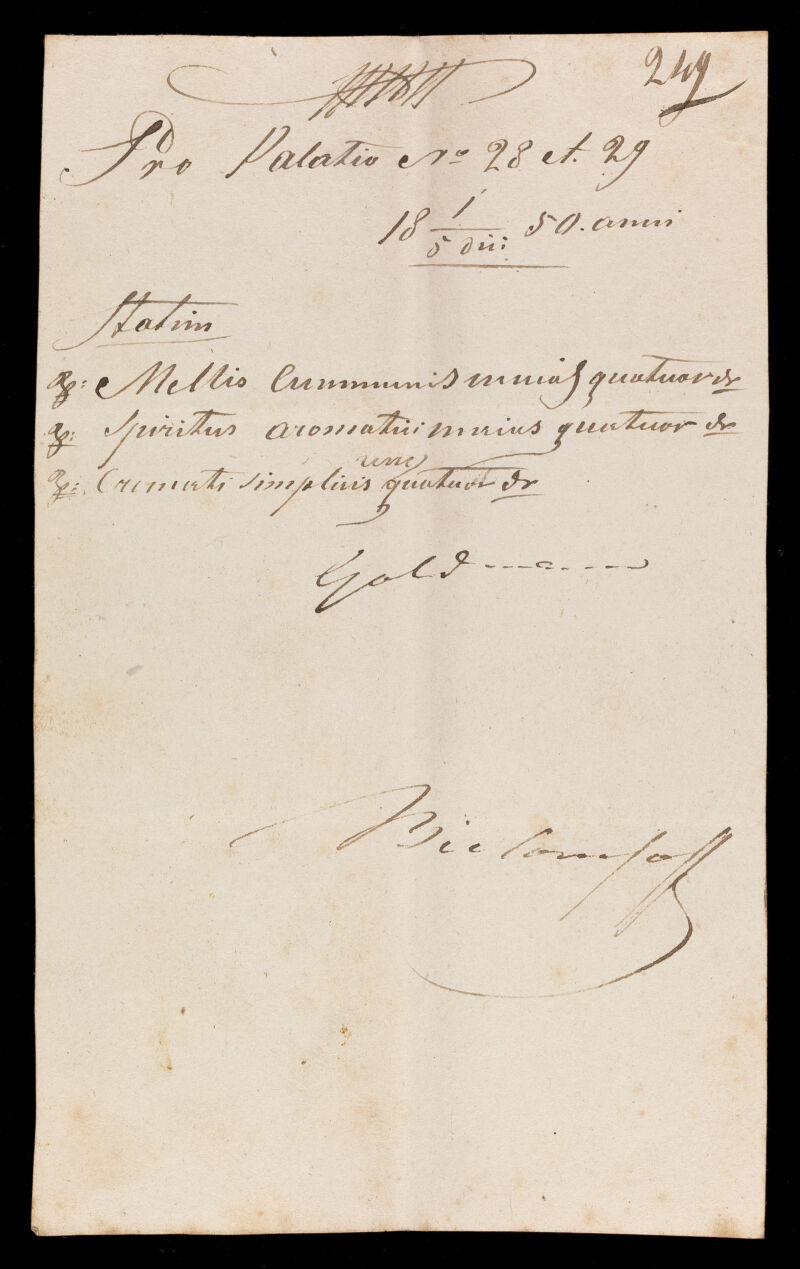 249
Pro Palatio No 28 et. 29
18 1/5 diii 50. anni
Statim
Rp: Mellis Cummunis uncias quatuor dr
Rp: Spiritus aromatici uncias quatuor dr
unc
Rp: Cremati simplicis quatuor dr
Goldmann